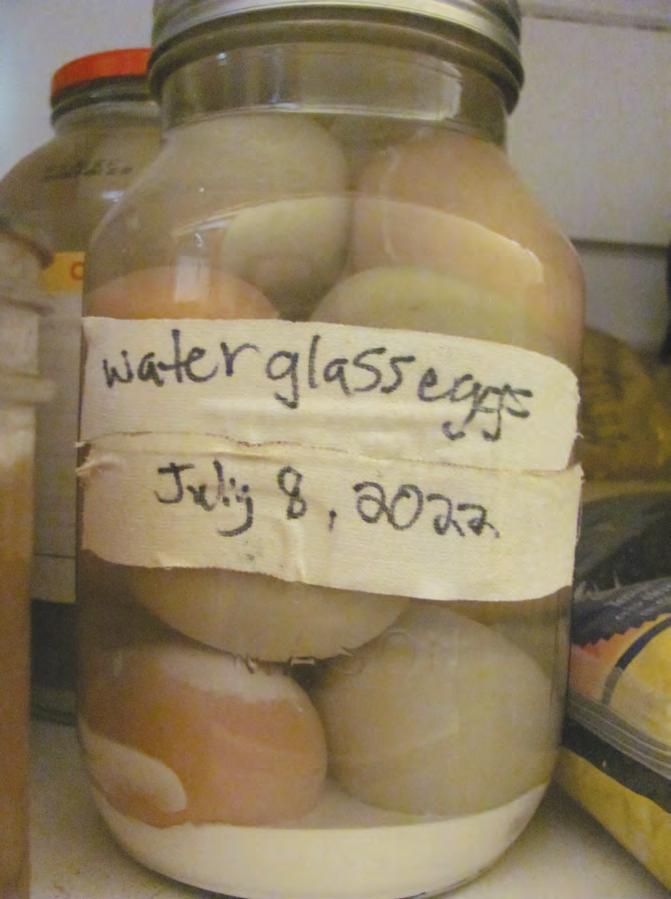 water glass eggs
July 8, 2022